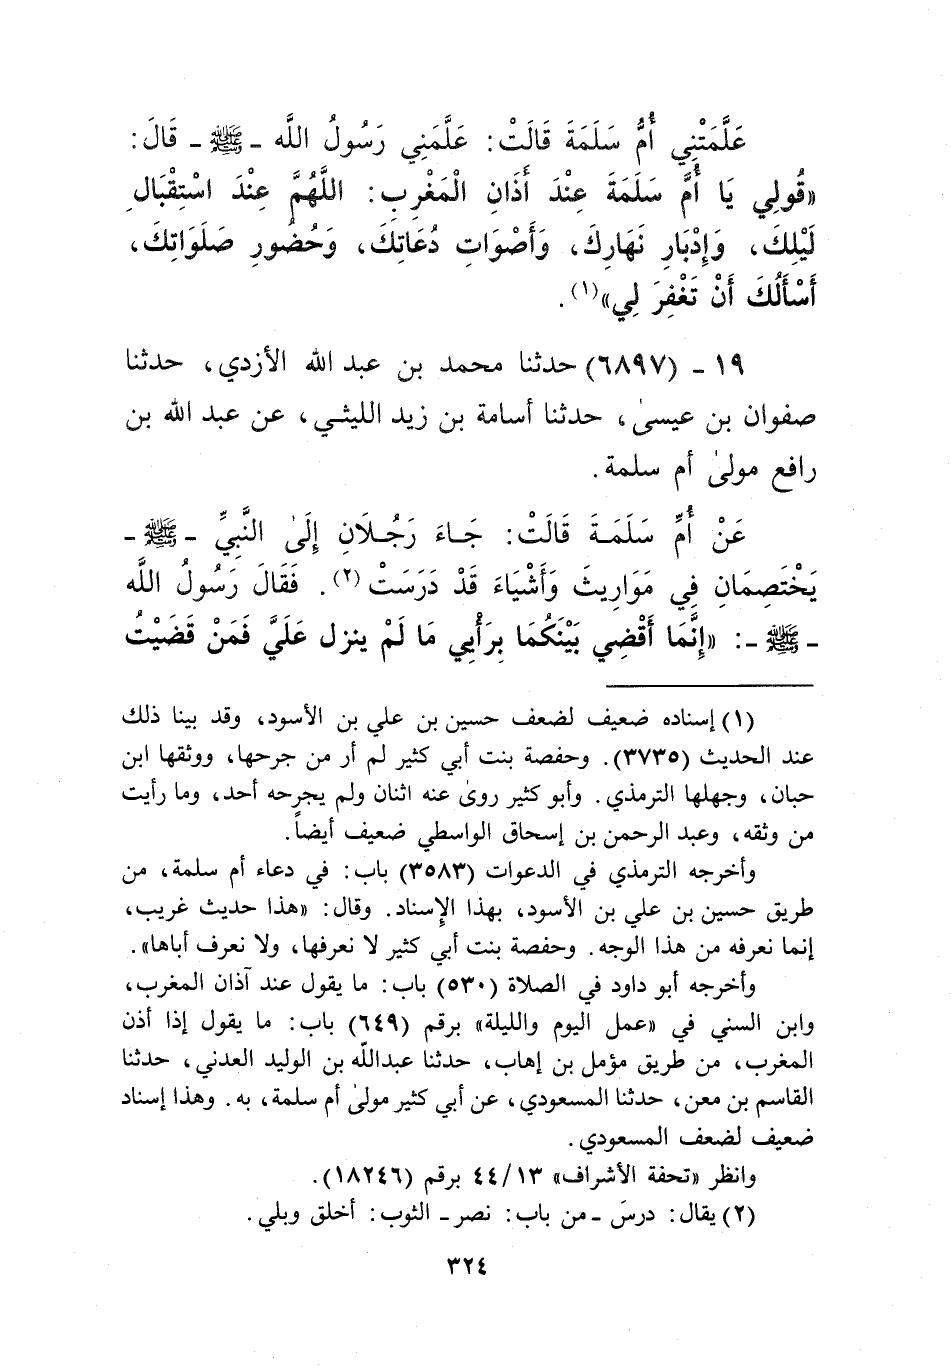 عَلَّمَتْنِي أُمُّ سَلَمَةَ قَالَتْ: عَلَّمَنِي رَسُولُ اللَّه ـ ﷺ ـ قَالَ:
«قُولِي يَا أُمَّ سَلَمَةَ عِنْدَ أَذَانِ الْمَغْرِبِ: اللَّهُمَّ عِنْدَ اسْتِقْبَالِ
لَيْلِكَ، وَإِدْبَارِ نَهَارِكَ، وَأَصْوَاتِ دُعَاتِكَ، وَحُضُورِ صَلَوَاتِكَ،
أَسْأَلُكَ أَنْ تَغْفِرَ لِي»(١).
١٩ ـ (٦٨٩٧) حدثنا محمد بن عبد الله الأزدي، حدثنا
صفوان بن عيسىٰ، حدثنا أسامة بن زيد الليثي، عن عبد الله بن
رافع مولىٰ أم سلمة.
عَنْ أُمِّ سَلَمَةَ قَالَتْ: جَاءَ رَجُلَانِ إِلَىٰ النَّبِيِّ ـ ﷺ ـ
يَخْتَصِمَانِ فِي مَوَارِيثَ وَأَشْيَاءَ قَدْ دَرَسَتْ(٢). فَقَالَ رَسُولُ اللَّه
ـ ﷺ ـ: «إِنَّمَا أَقْضِي بَيْنَكُمَا بِرَأْيِي مَا لَمْ ينزل عَلَيَّ فَمَنْ قَضَيْتُ
(١) إسناده ضعيف لضعف حسين بن علي بن الأسود، وقد بينا ذلك
عند الحديث (٣٧٣٥). وحفصة بنت أبي كثير لم أر من جرحها، ووثقها ابن
حبان، وجهلها الترمذي. وأبو كثير روىٰ عنه اثنان ولم يجرحه أحد، وما رأيت
من وثقه، وعبد الرحمن بن إسحاق الواسطي ضعيف أيضاً.
وأخرجه الترمذي في الدعوات (٣٥٨٣) باب: في دعاء أم سلمة، من
طريق حسين بن علي بن الأسود، بهذا الإسناد. وقال: «هذا حديث غريب،
إنما نعرفه من هذا الوجه. وحفصة بنت أبي كثير لا نعرفها، ولا نعرف أباها».
وأخرجه أبو داود في الصلاة (٥٣٠) باب: ما يقول عند آذان المغرب،
وابن السني في «عمل اليوم والليلة» برقم (٦٤٩) باب: ما يقول إذا أذن
المغرب، من طريق مؤمل بن إهاب، حدثنا عبدالله بن الوليد العدني، حدثنا
القاسم بن معن، حدثنا المسعودي، عن أبي كثير مولىٰ أم سلمة، به. وهذا إسناد
ضعيف لضعف المسعودي.
وانظر «تحفة الأشراف» ٤٤/١٣ برقم (١٨٢٤٦).
(٢) يقال: درسَ ـ من باب: نصر ـ الثوب: أخلق وبلي.
٣٢٤